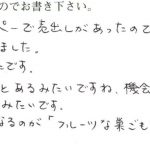 のでお書き下さい。
ペーで売出しがあったので
ました。
たです。
とあるみたいですね、機会
みたいです。
なるのが「フルーツな巣ごも